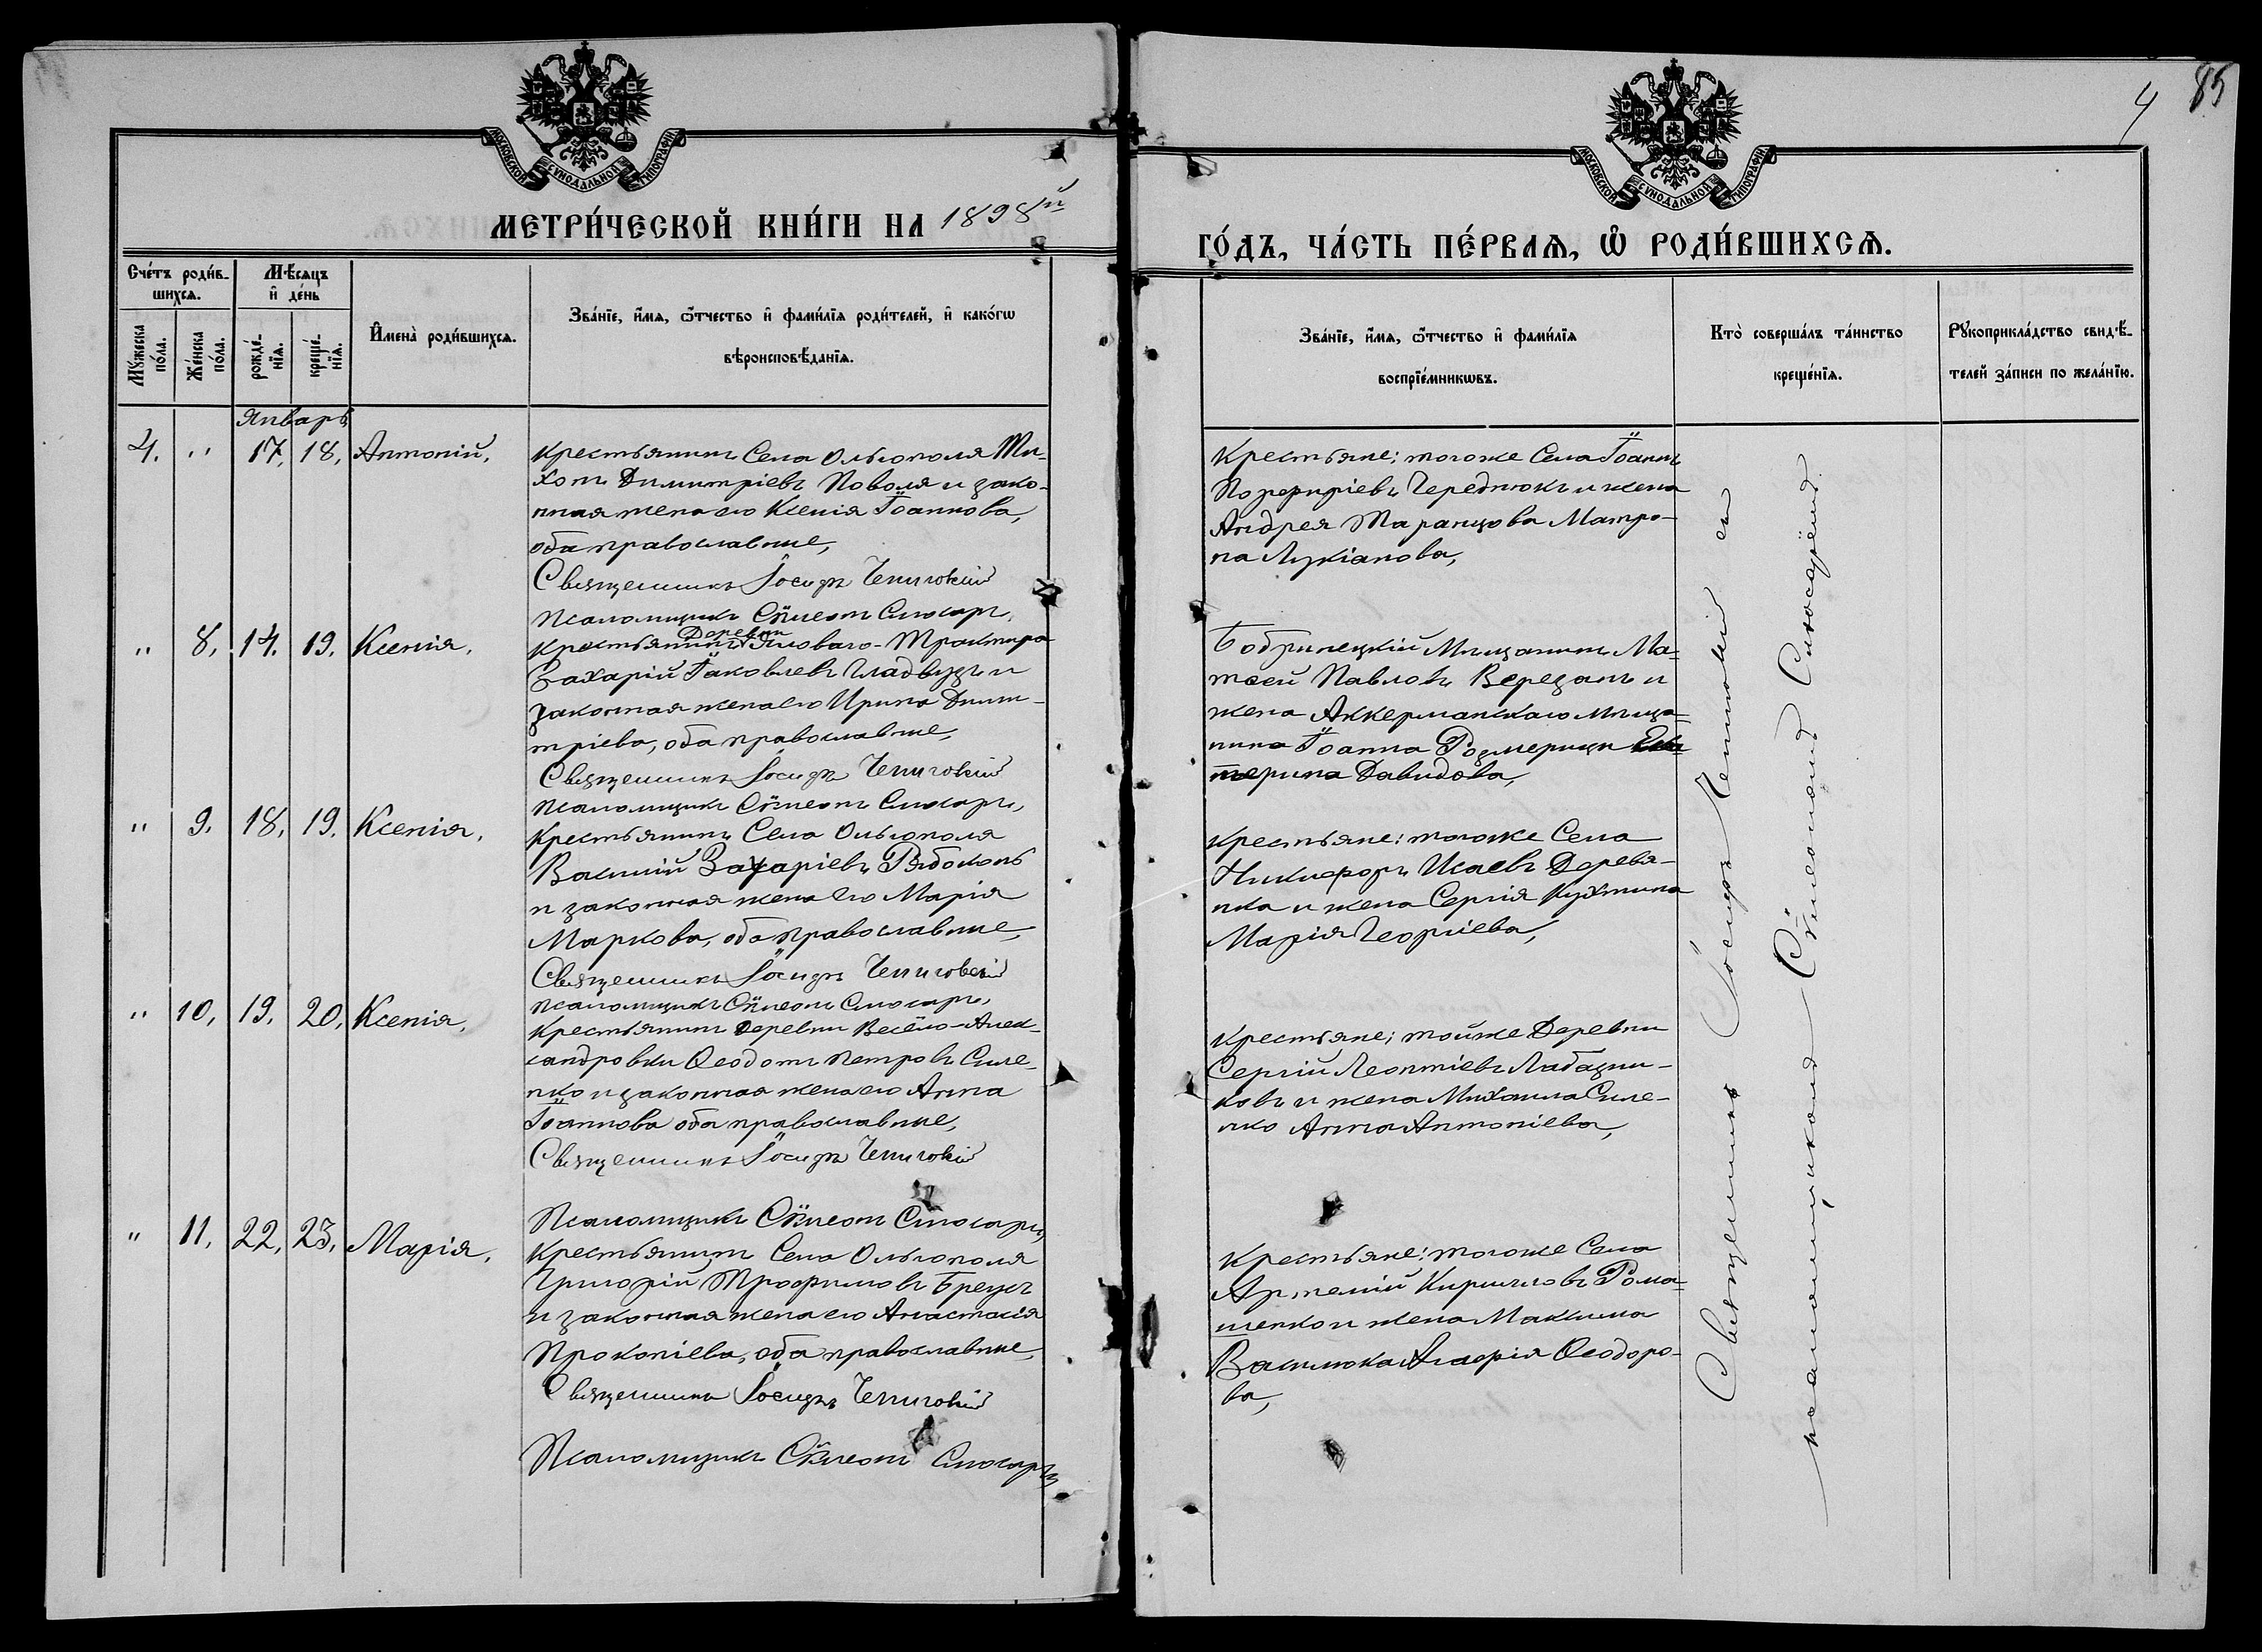 4 85
МОСКОВСКОЙ СѴНОДАЛЬНОЙ ТИПОГРАФІИ
МОСКОВСКОЙ СѴНОДАЛЬНОЙ ТИПОГРАФІИ
МЕТРИ́ЧЕСКОЙ КНИ́ГИ НА 1898й
ГО́ДЪ, ЧА́СТЬ ПЕ́РВАѦ, Ѡ҆ РОДИ́ВШИХСѦ.
Сче́тъ роди́в-
шихсѧ.
Мꙋ́жеска по́ла.
Же́нска по́ла.
Мѣ́сѧцъ
и҆ де́нь
рожде́-нїѧ.
креще́-нїѧ.
И҆мена̀ роди́вшихсѧ.
Зва́нїе, и҆́мѧ, ѻ҆́тчество и҆ фами́лїѧ роди́телей, и҆ како́гѡ
вѣроисповѣ́данїѧ.
Зва́нїе, и҆́мѧ, ѻ҆́тчество и҆ фами́лїѧ
воспрїе́мникѡвъ.
Кто̀ соверша́лъ та́инство
креще́нїѧ.
Рꙋкоприкла́дство свидѣ́-
телей за́писи по жела́нїю.
Январь
4. " 17, 18, Антоній,
Крестьянинъ Села Ольгополя Ти-
хонъ Димитріевъ Поволя и зако-
нная жена его Ксенія Іоаннова,
оба православные,
Священникъ Іосифъ Чепиговскій
Псаломщикъ Сѵмеонъ Слюсарь,
Крестьяне; тогоже Села Іоаннъ
Порфиріевъ Чередникъ и жена
Андрея Таранцова Матро-
на Лукіанова,
" 8, 14. 19. Ксенія,
Деревни
Крестьянинъ Яловаго-Трактира
Захарій Іаковлевъ Гладвузъ и
законная жена его Ирина Дими-
тріева, оба православные,
Священникъ Іосифъ Чепиговскій
Псаломщикъ Сѵмеонъ Слюсарь,
Бобринецкій Мѣщанинъ Ма-
тѳей Павловъ Верезанъ и
жена Аккерманскаго мѣща-
нина Іоанна Розмерицы Ека-
терина Давидова,
" 9. 18, 19. Ксенія,
Крестьянинъ Села Ольгополя
Василій Захаріевъ Рябоконь
и законная жена его Марія
Маркова, оба православные,
Священникъ Іосифъ Чепиговскій
Псаломщикъ Сѵмеонъ Слюсарь,
Крестьяне: тогоже Села
Никифоръ Исаевъ Деревя-
нка и жена Сергія Кухтина
Марія Георгіева,
" 10, 19. 20, Ксенія,
Крестьянинъ Деревни Весёло-Алек-
сандровки Ѳеодотъ Петровъ Силе-
нко и законная жена его Анна
Іоаннова оба православные,
Священникъ Іосифъ Чепиговскій
Псаломщикъ Сѵмеонъ Слюсарь,
Крестьяне; тойже Деревни
Сергій Леонтіевъ Лабазни-
ковъ и жена Михаила Силе-
нко Анна Антоніева,
" 11, 22, 23, Марія,
Крестьянинъ Села Ольгополя
Григорій Трофимовъ Брецъ
и законная жена его Анастасія
Прокопіева, оба православные,
Священникъ Іосифъ Чепиговскій
Псаломщикъ Сѵмеонъ Слюсарь,
Крестьяне; тогоже Села
Артемій Кирилловъ Рома-
шенко и жена Максима
Василюка Ѳеодоро-
ва,
Священникъ Іосифъ Чепиговскій съ
псаломщикомъ Сѵмеономъ Слюсарёмъ